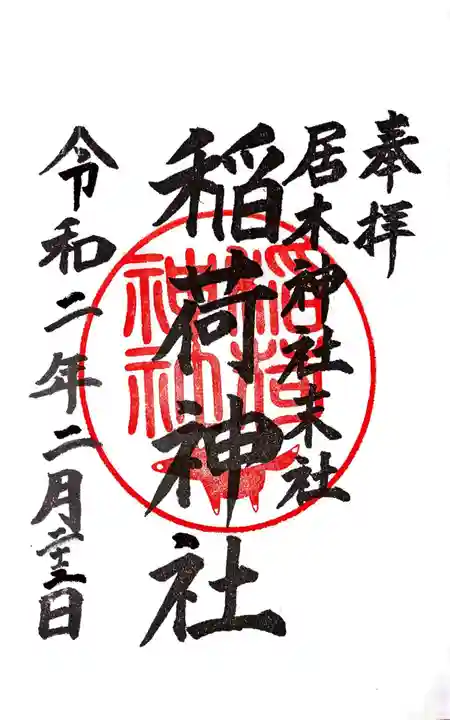 奉拝
居木神社末社
稲荷神社
令和二年二月二十二日
稲荷
神社